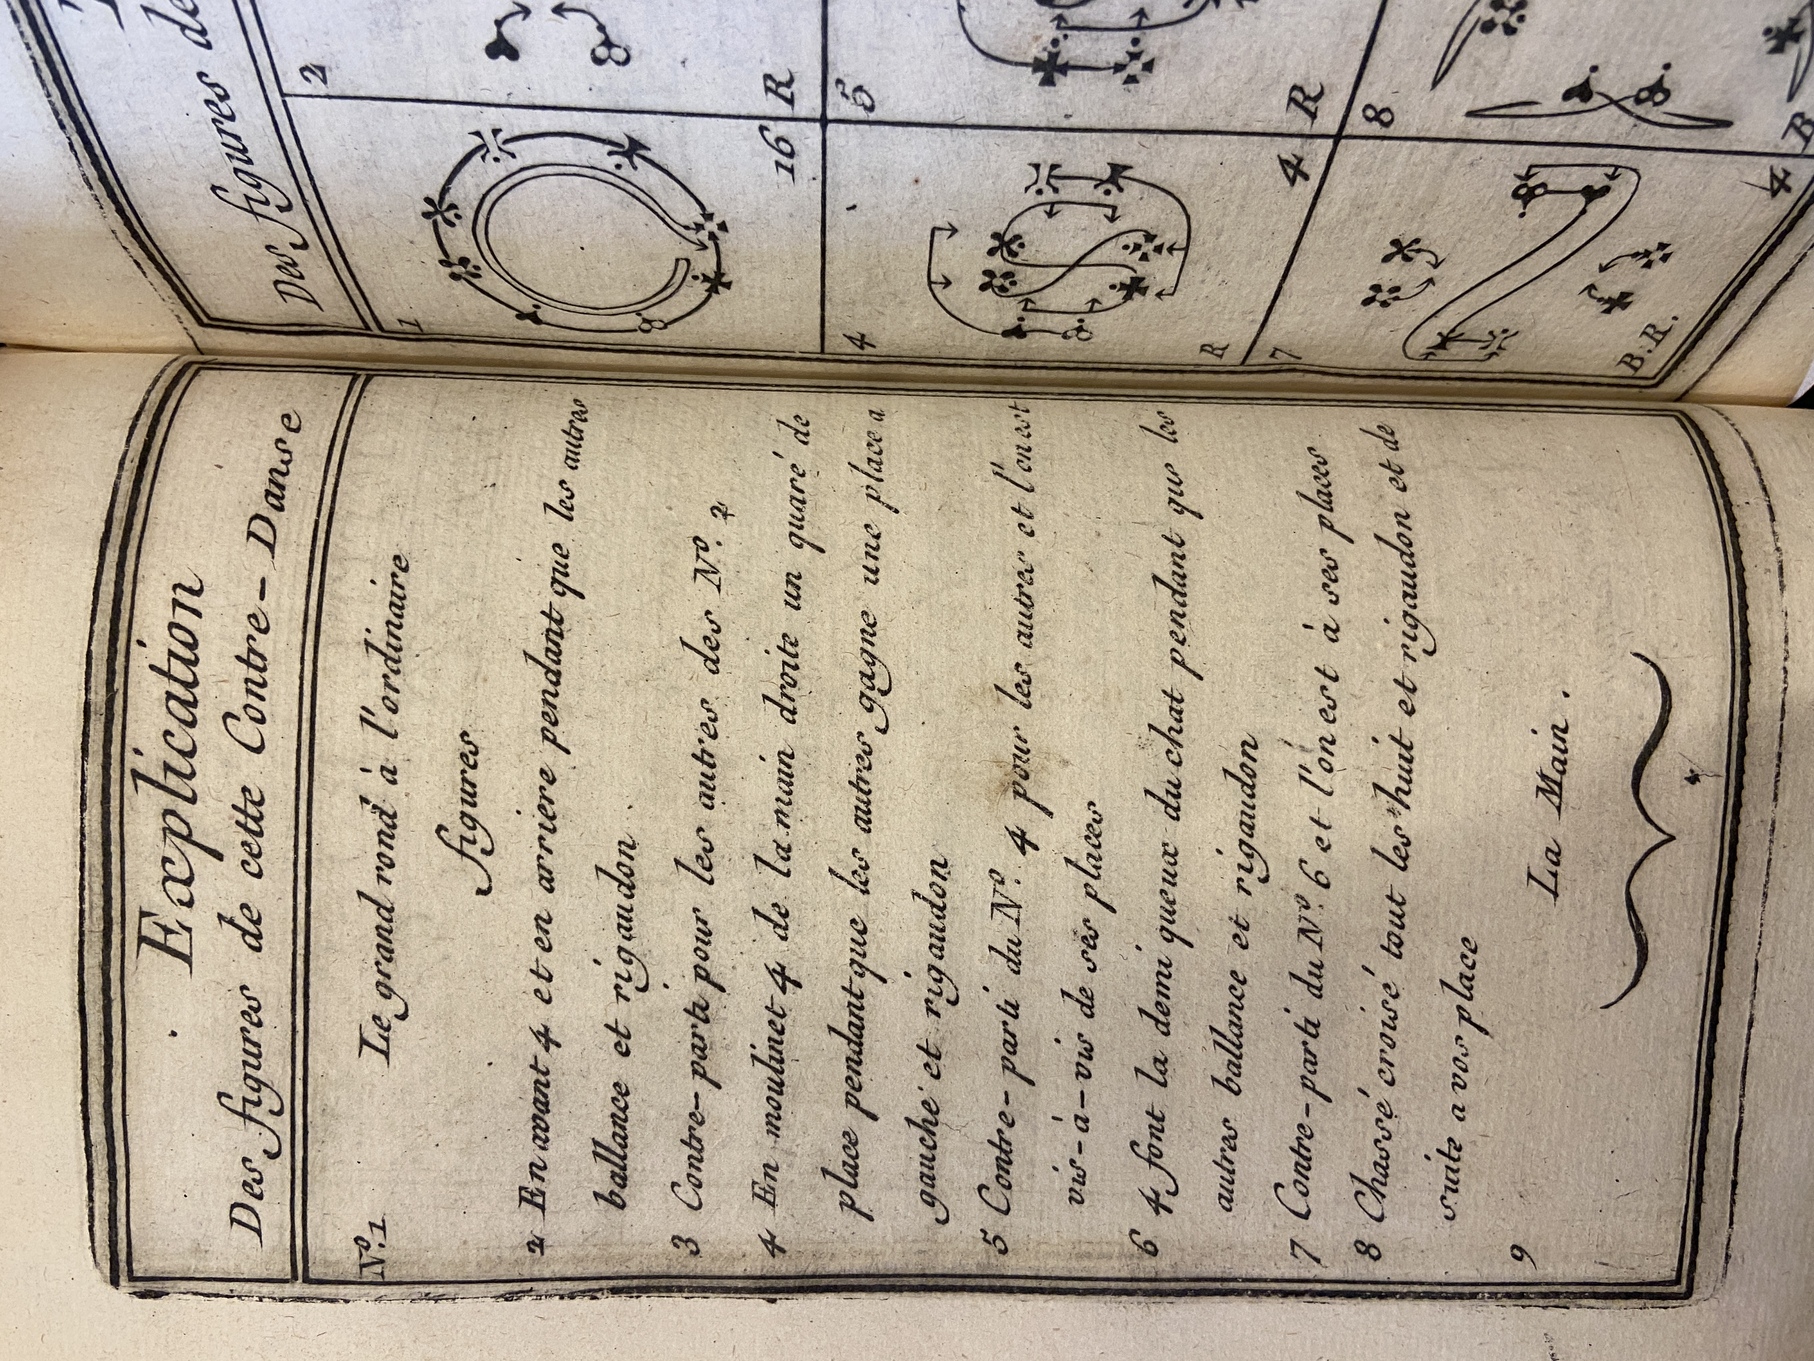 Explication
Des figures de cette Contre-Danse
Nº.1 Le grand rond à l'ordinaire
figures
2 En avant 4 et en arriere pendant que les autres
ballance et rigaudon.
3 Contre-parti pour les autres des Nº. 2
4 En moulinet 4 de la main droite un quaré de
place pendant que les autres gagne une place a
gauche et rigaudon
5 Contre-parti du Nº. 4 pour les autres et l'on est
vis-à-vis de ses places
6 4 font la demi queux du chat pendant que les
autres ballance et rigaudon
7 Contre-parti du Nº. 6 et l'on est à ses places
8 Chassé croisé tout les huit et rigaudon et de
suite a vos place
9 La Main.
Des figures de
1
16
2
R
4
R
4
5
R
7
B.R.
4
8
R